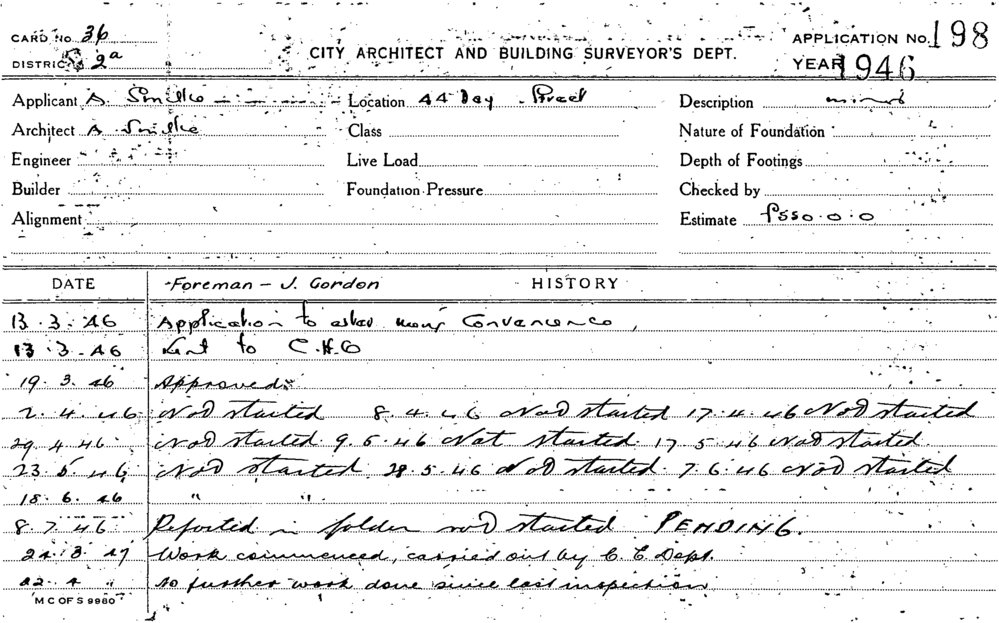 CARD No 36
APPLICATION No. 198
DISTRICT 2a
CITY ARCHITECT AND BUILDING SURVEYOR'S DEPT.
YEAR 1946
Applicant A Location 44 Day Street Description
Architect A Class Nature of Foundation
Engineer Live Load Depth of Footings
Builder Foundation Pressure Checked by
Alignment Estimate £550.0.0
DATE Foreman - J. Gordon HISTORY
13.3.46 Application to mens Convenience,
13.3.46 Sent to C.H.O
19.3.46 Approved
2.4.46 Not started 8.4.46 Not started 17.4.46 Not started
29.4.46 Not started 9.5.46 Not started 17.5.46 Not started
23.5.46 Not started 28.5.46 Not started 7.6.46 Not started
18.6.46 " "
8.7.46 Reported in folder not started PENDING.
24.3.47 Work commenced, carried out by C.E. Dept.
22.4 " No further work done since last inspection
M C OF S 9980